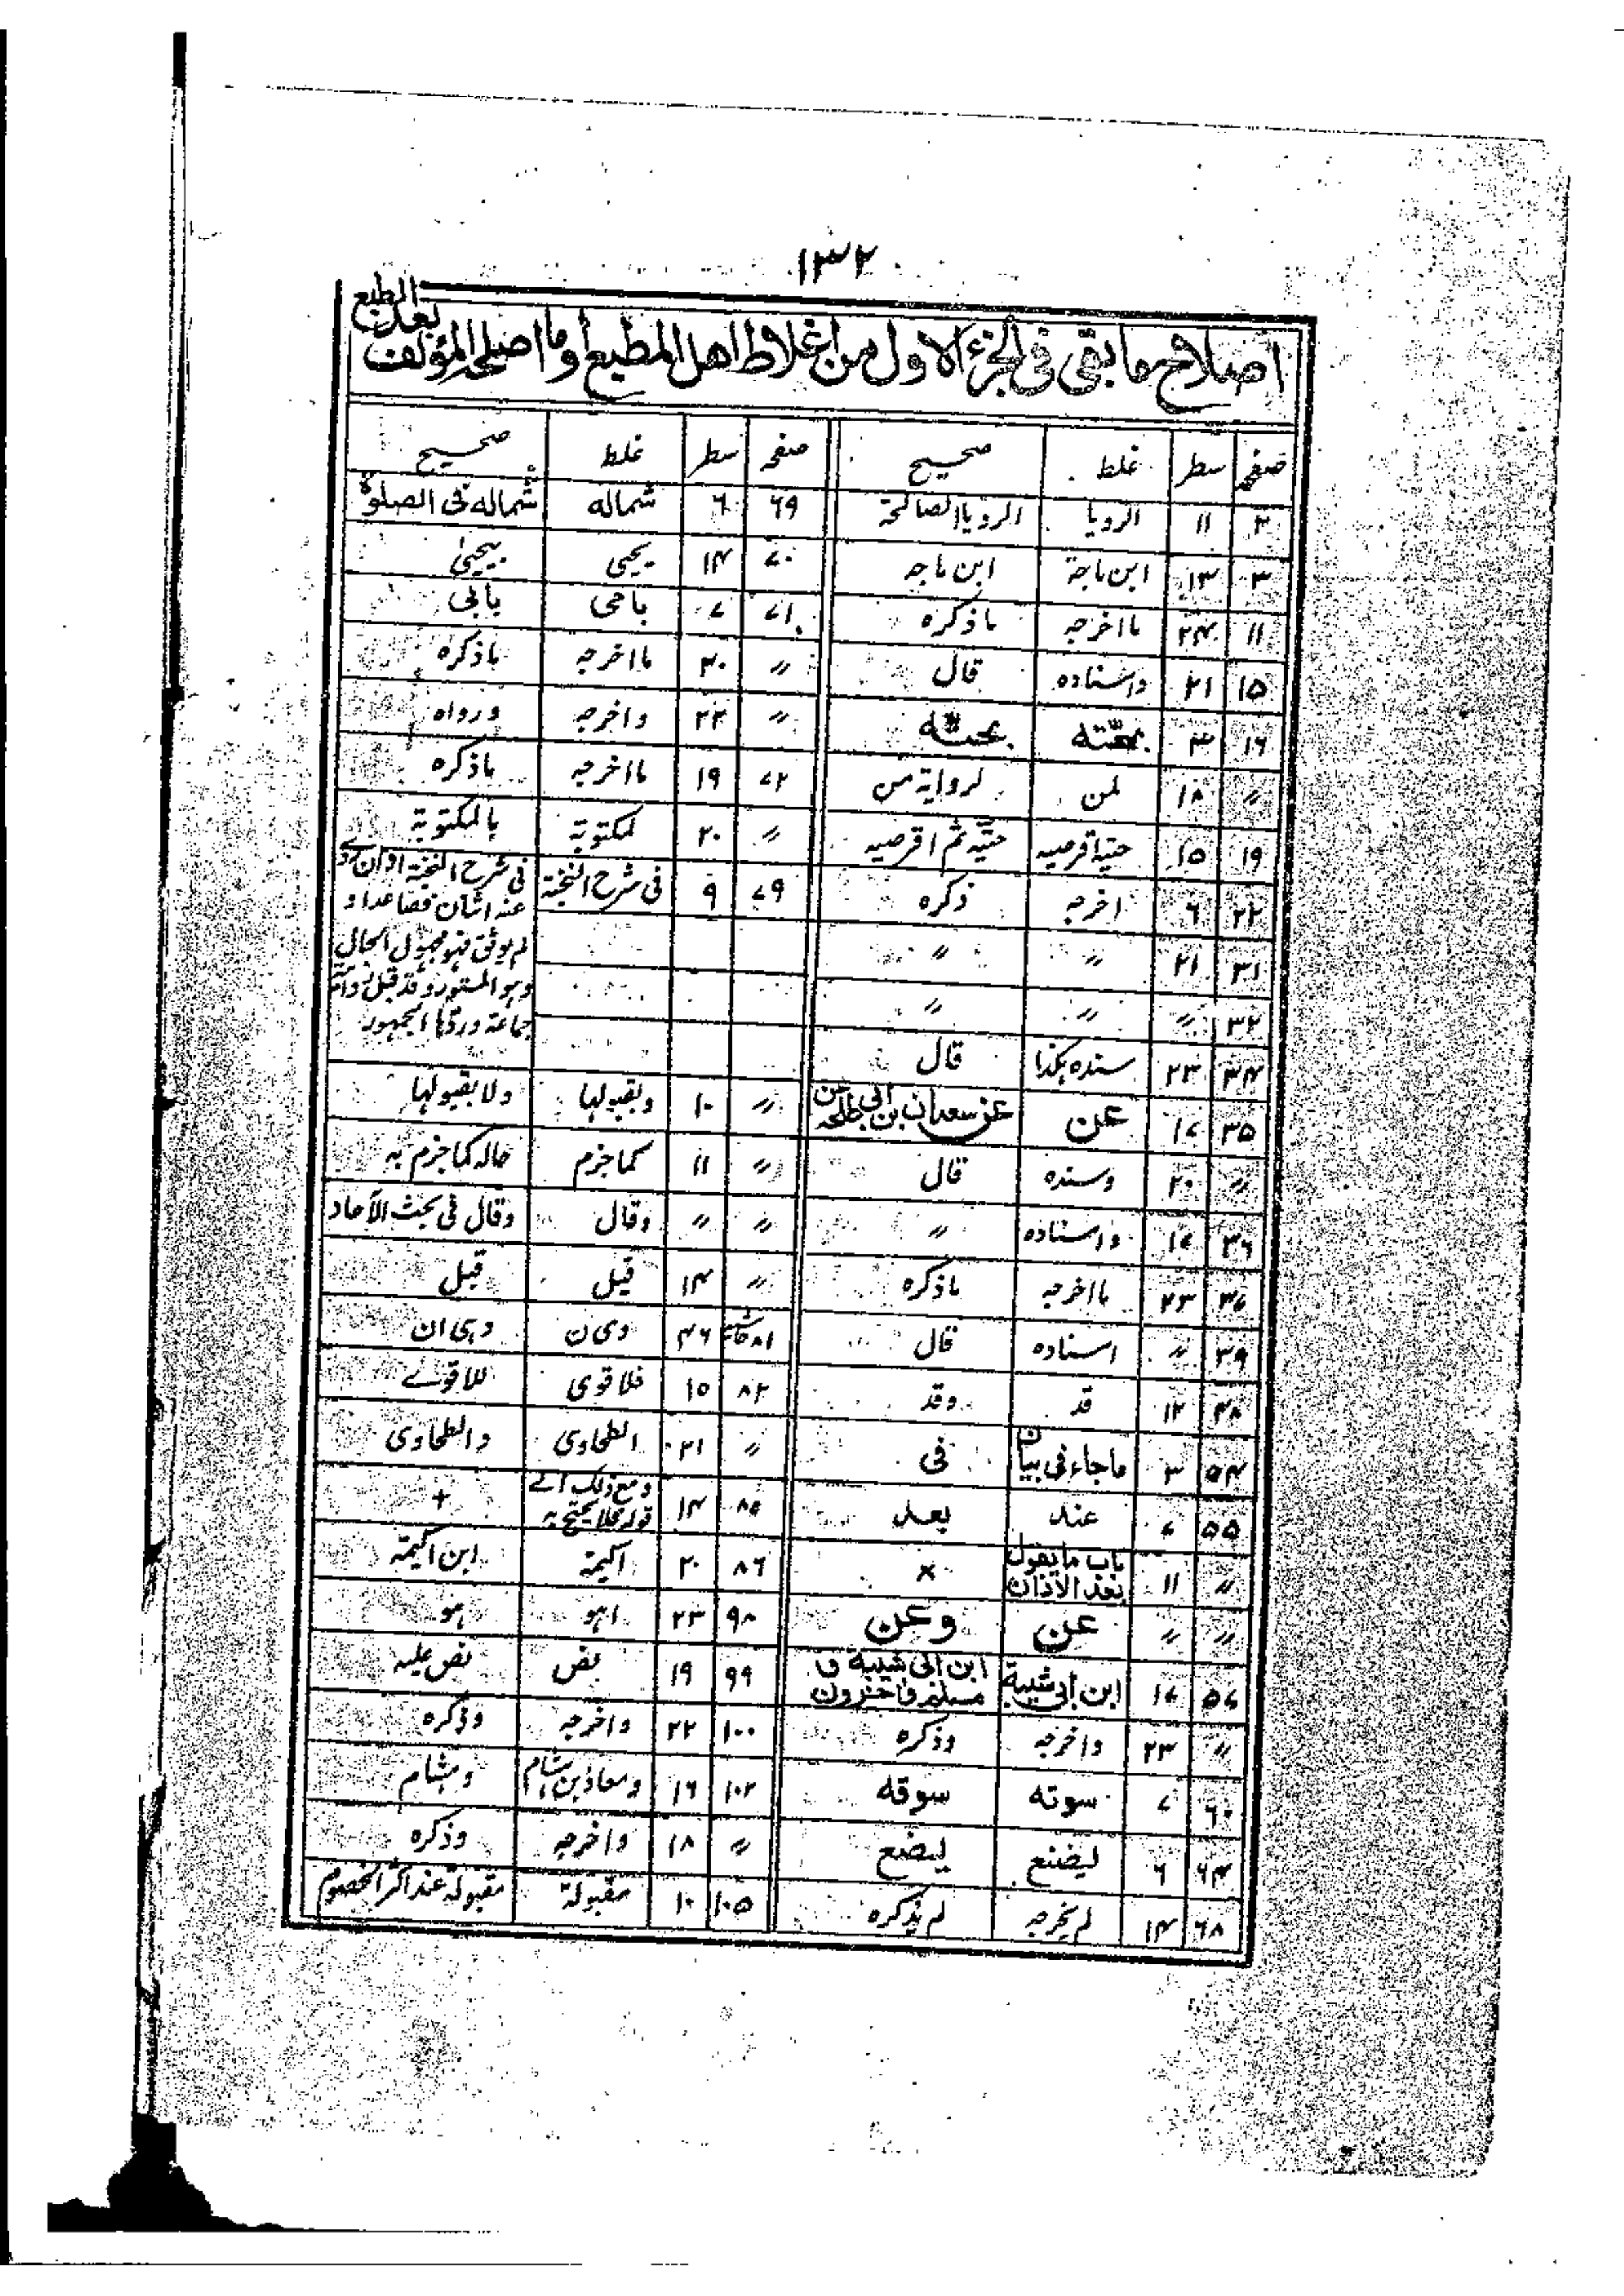 ١٣٢
اصلاح ما بقى فى الجزء الاول من اغلاط اهل المطبع أو ما اصلحه المؤلف بعد الطبع
صفحه سطر غلط صحيح
٣ ١١ الرويا الرويا الصالحة
٣ ١٣ ابن ماجة ابن ماجه
١١ ٢٤ ما اخرجه ما ذكره
١٥ ٢١ واسناده قال
١٦ ٣
〃 ١٨ لمن لرواية من
١٩ ١٥ حتيه اقرصيه حتيه ثم اقرصيه
٢٢ ٦ اخرجه ذكره
٣١ ٢١ 〃 〃
٣٢ 〃 〃 〃
٣٤ ٢٣ سنده هكذا قال
٣٥ ١٧ عن عن سعدان بن ابى طلحة عن
〃 ٢٠ وسنده قال
٣٦ ١٧ واسناده 〃
٣٧ ٢٣ ما اخرجه ما ذكره
٣٩ 〃 اسناده قال
٤٨ ١٢ قد وقد
٥٤ ٣ ماجاء فى بيان فى
٥٥ ٧ عند بعد
〃 ١١ باب ما يقول بعد الاذان ×
〃 〃 عن وعن
٥٧ ١٧ ابن ابى شيبة ابن ابى شيبة و مسلم واخرون
〃 ٢٣ واخرجه وذكره
٦٠ ٧ سوته سوقه
٦٤ ٦ ليضنع ليضع
٦٨ ١٤ لم يخرجه لم يذكره
صفحه سطر غلط صحيح
٦٩ ٦ شماله شماله فى الصلوة
٧٠ ١٤ يحيى بيحيىٰ
٧١ ٧ باحى بابى
〃 ٢٠ ما اخرجه ما ذكره
〃 ٢٢ واخرجه ورواه
٧٢ ١٩ ما اخرجه ما ذكره
〃 ٢٠ لمكتوبة بالمكتوبة
٧٩ ٩ فى شرح النخبة فى شرح النخبة او ان روى
عنه اثنان فصاعدا و
لم يوثق فهو مجهول الحال
وهو المستور وقد قبل روايته
جماعة وردها الجمهور
〃 ١٠ وبقبولها ولا بقبولها
〃 ١١ كما جزم حاله كما جزم به
〃 〃 وقال وقال فى بحث الآحاد
〃 ١٤ قيل قبل
٨١ حاشيه ٤٦ وى ن وهى ان
٨٢ ١٥ فلا قوى للاقوے
〃 ٢١ الطحاوى والطحاوى
٨٥ ١٤ ومع ذلك الے قوله فلا يحتج به +
٨٦ ٢٠ اكيمة ابن اكيمة
٩٨ ٢٣ اهو هو
٩٩ ١٩ نص نص عليه
١٠٠ ٢٢ واخرجه وذكره
١٠٢ ١٦ ومعاذ بن هشام وهشام
〃 ١٨ واخرجه وذكره
١٠٥ ١٠ مقبولة مقبولة عند اكثر الخصوم